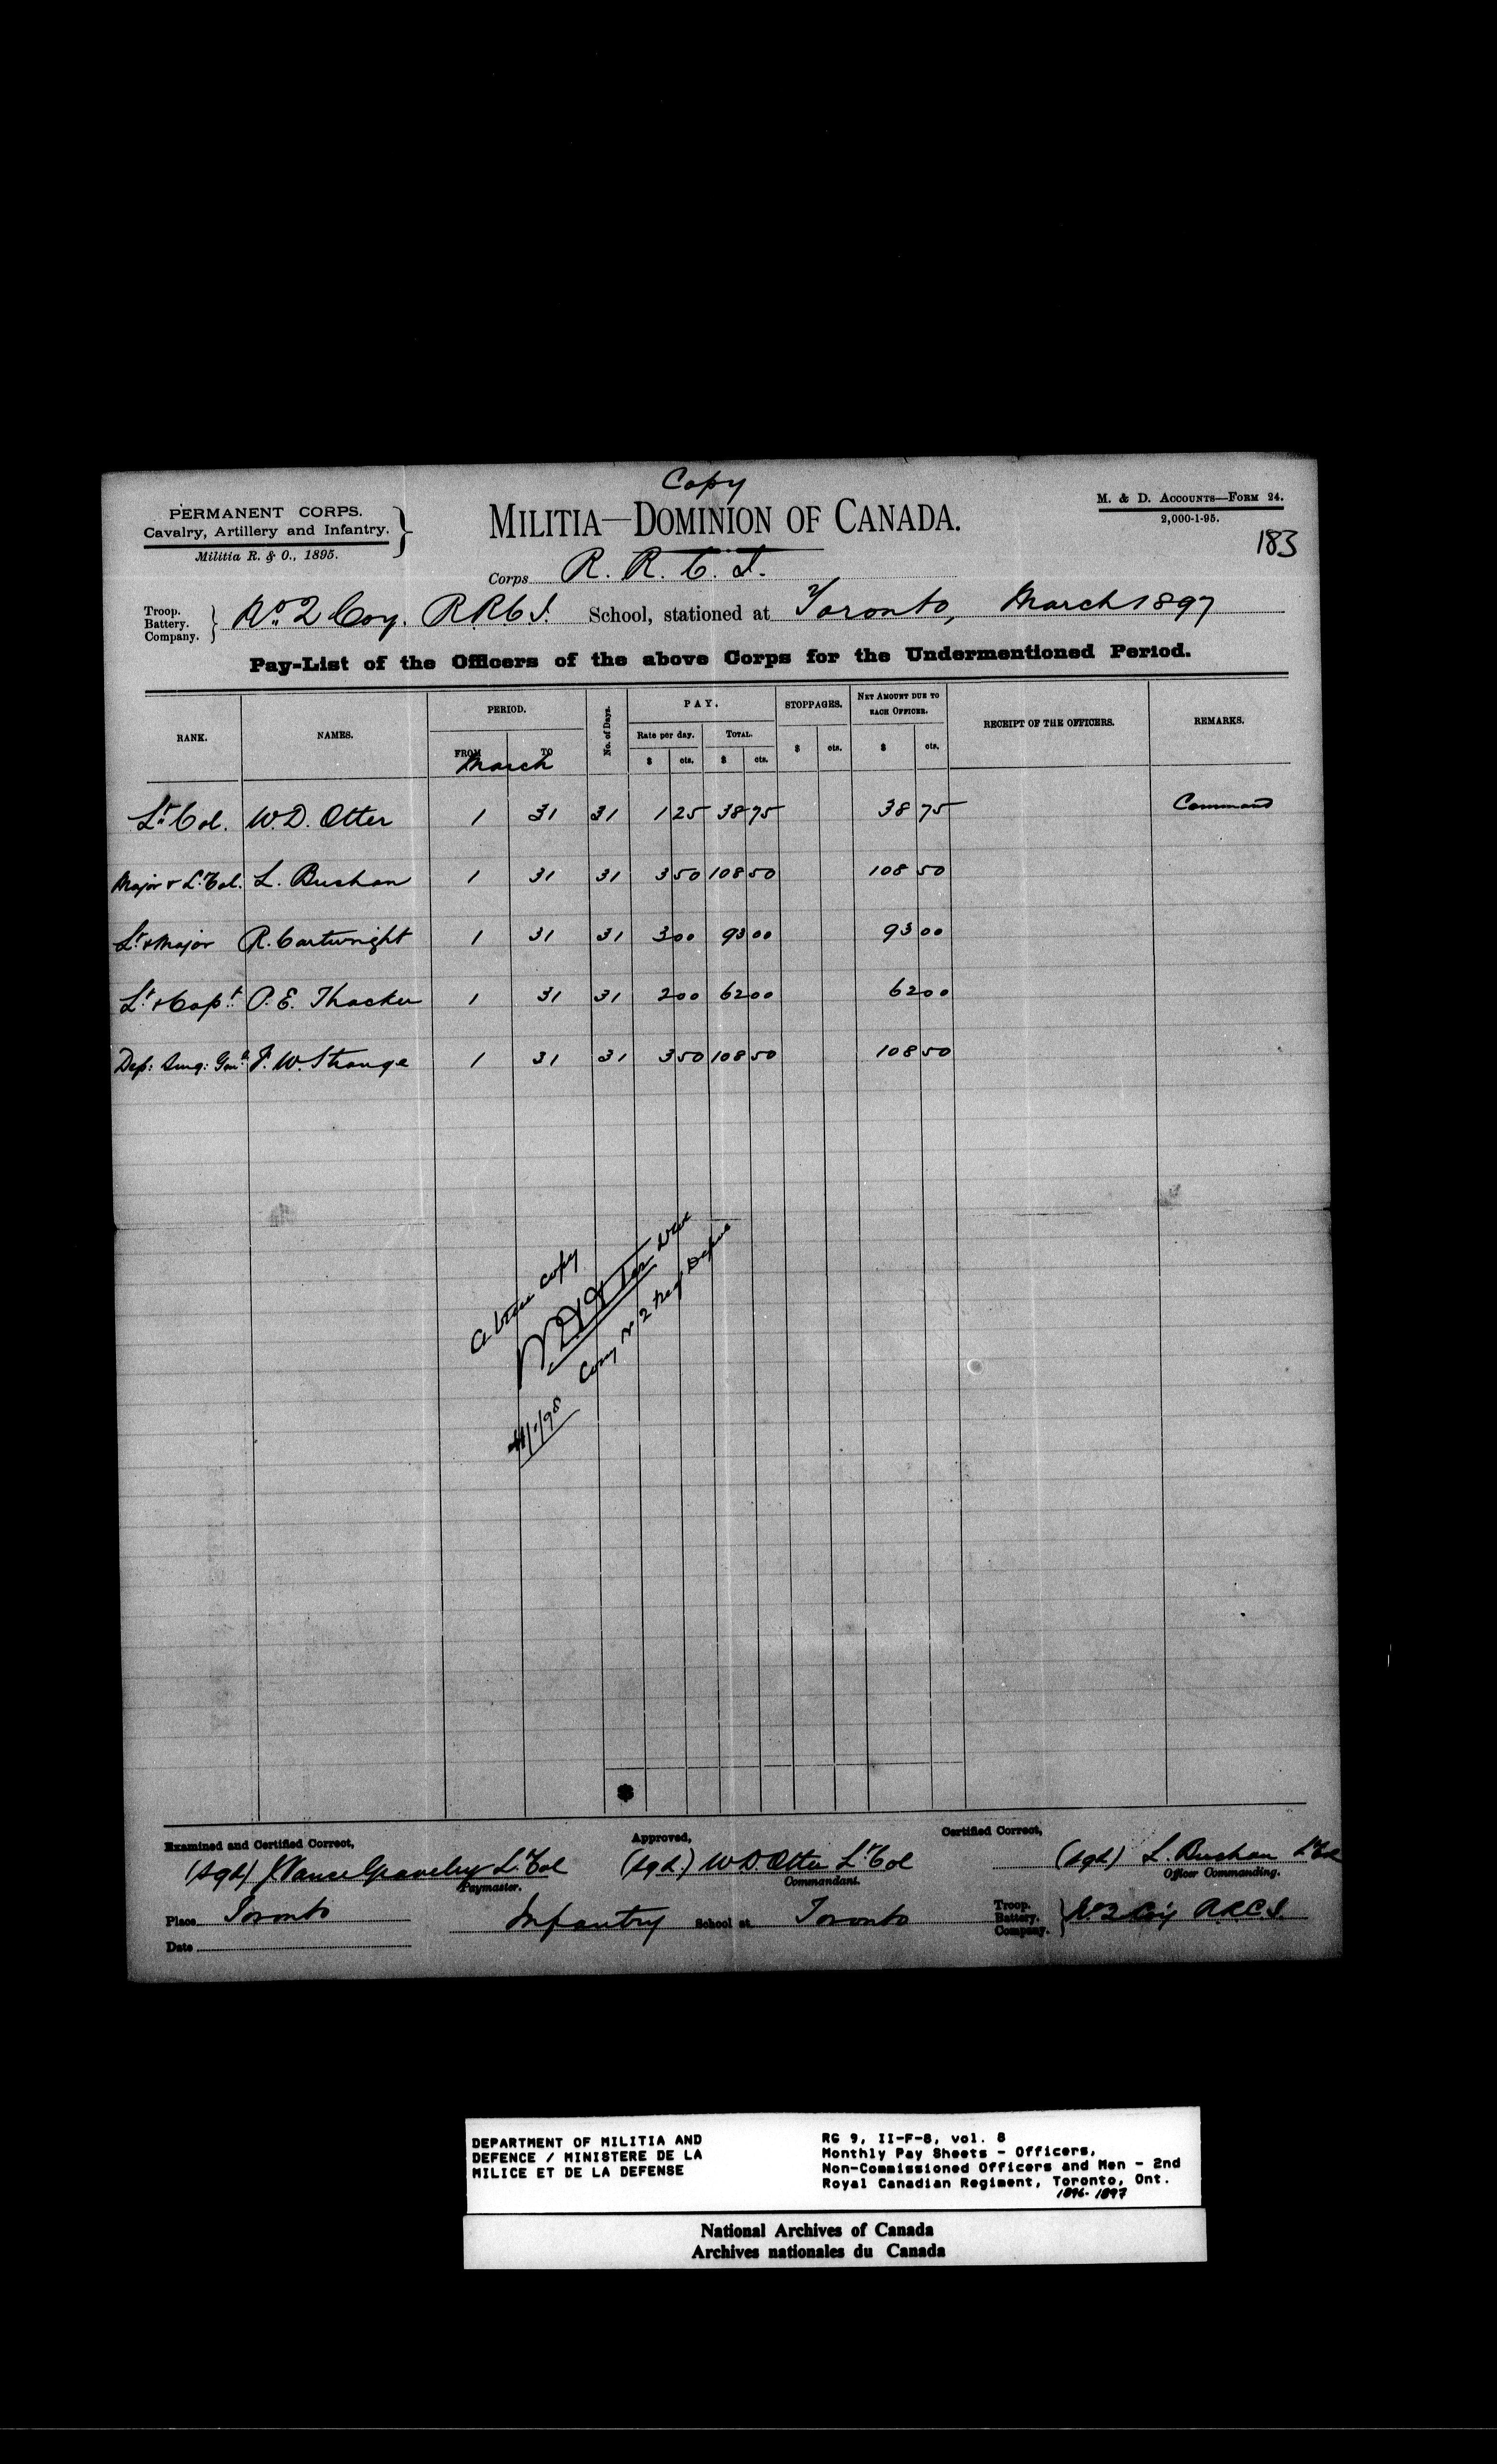 Copy
PERMANENT CORPS.
Cavalry, Artillery and Infantry.
Militia R. & O., 1895.
MILITIA—DOMINION OF CANADA.
M. & D. ACCOUNTS—FORM 24.
2,000-1-95.
183
Corps R. R. C. I.
Troop.
Battery.
Company.
No. 2 Coy. R.R.C.I. School, stationed at Toronto, March 1897
Pay-List of the Officers of the above Corps for the Undermentioned Period.
RANK. NAMES. PERIOD. No. of Days. PAY. STOPPAGES. NET AMOUNT DUE TO EACH OFFICER. RECEIPT OF THE OFFICERS. REMARKS.
FROM TO Rate per day. TOTAL. $ cts. $ cts.
March $ cts. $ cts.
Lt. Col. W. D. Otter 1 31 31 1 25 38 75 38 75 Command
Major & Lt. Col. L. Buchan 1 31 31 3 50 108 50 108 50
Lt. & Major R. Cartwright 1 31 31 3 00 93 00 93 00
Lt. & Capt. P. E. Thacker 1 31 31 2 00 62 00 62 00
Dep: Surg: Genl. F. W. Strange 1 31 31 3 50 108 50 108 50
a true copy
Comg No 2 Regt Depot
11/1/98
Examined and Certified Correct,
(Sgd) J Vance Graveley Lt. Col
Paymaster.
Approved,
(Sgd.) W D. Otter Lt. Col
Commandant.
Certified Correct,
(Sgd) L. Buchan Lt Col
Officer Commanding.
Place Toronto
Infantry School at Toronto
Troop.
Battery.
Company.
No. 2 Coy R.R.C.I.
Date
DEPARTMENT OF MILITIA AND
DEFENCE / MINISTERE DE LA
MILICE ET DE LA DEFENSE
RG 9, II-F-8, vol. 8
Monthly Pay Sheets - Officers,
Non-Commissioned Officers and Men - 2nd
Royal Canadian Regiment, Toronto, Ont.
1896-1897
National Archives of Canada
Archives nationales du Canada